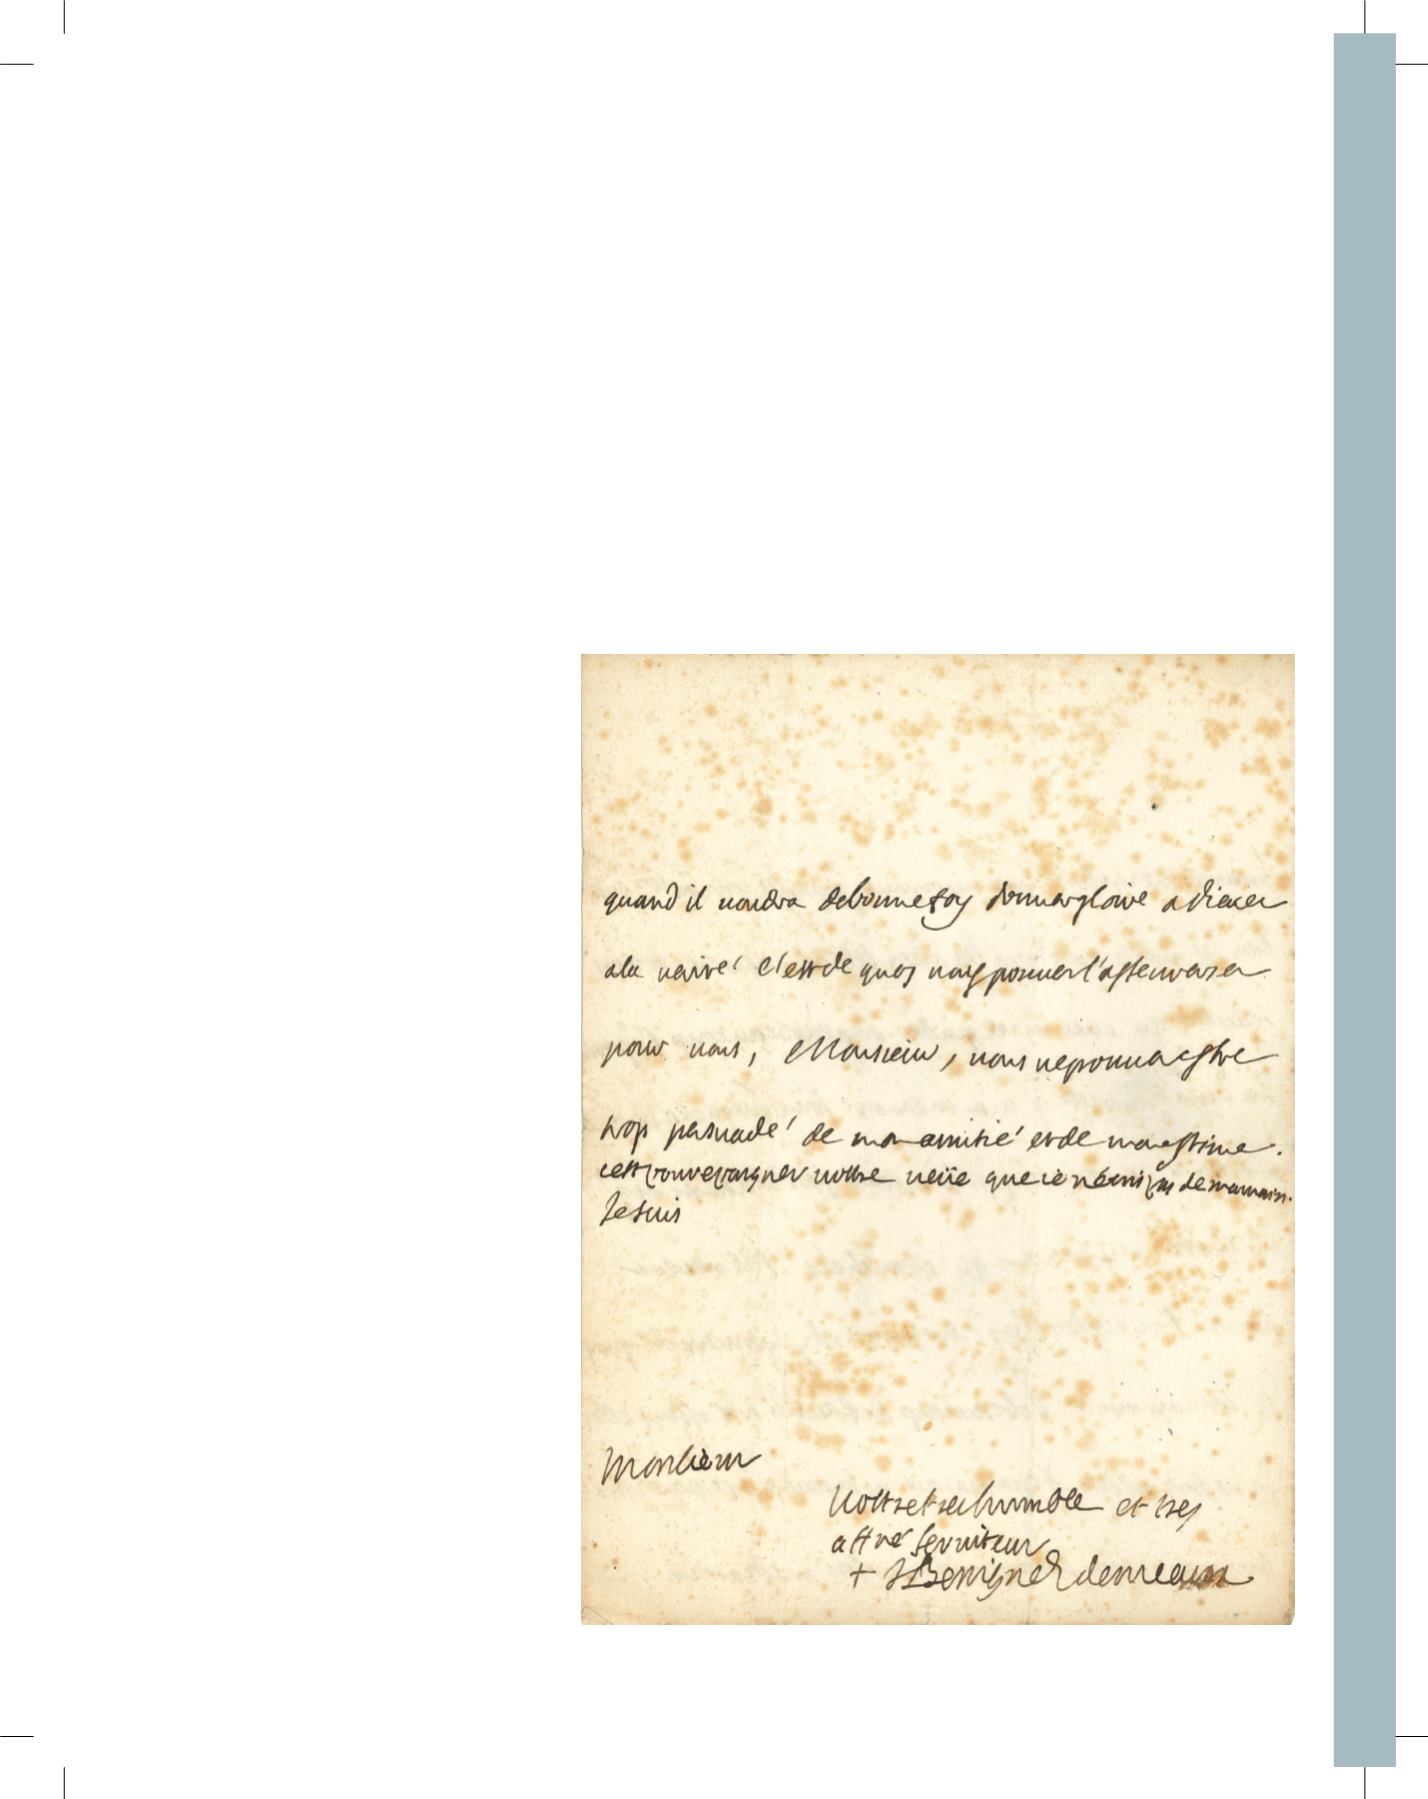 quand il voudra de bonne foy donner gloire a dieu et
a la verité c'est de quoy vous pouvez l'asseurer et
pour vous, Monsieur, vous ne pouvez estre
trop persuadé de mon amitié et de mon estime.
c'est pour epargner vostre veüe que ie n'écris pas de ma main.
Je suis
Monsieur
Vostre tres humble et tres
affné serviteur
+ J Benigne E de meaux